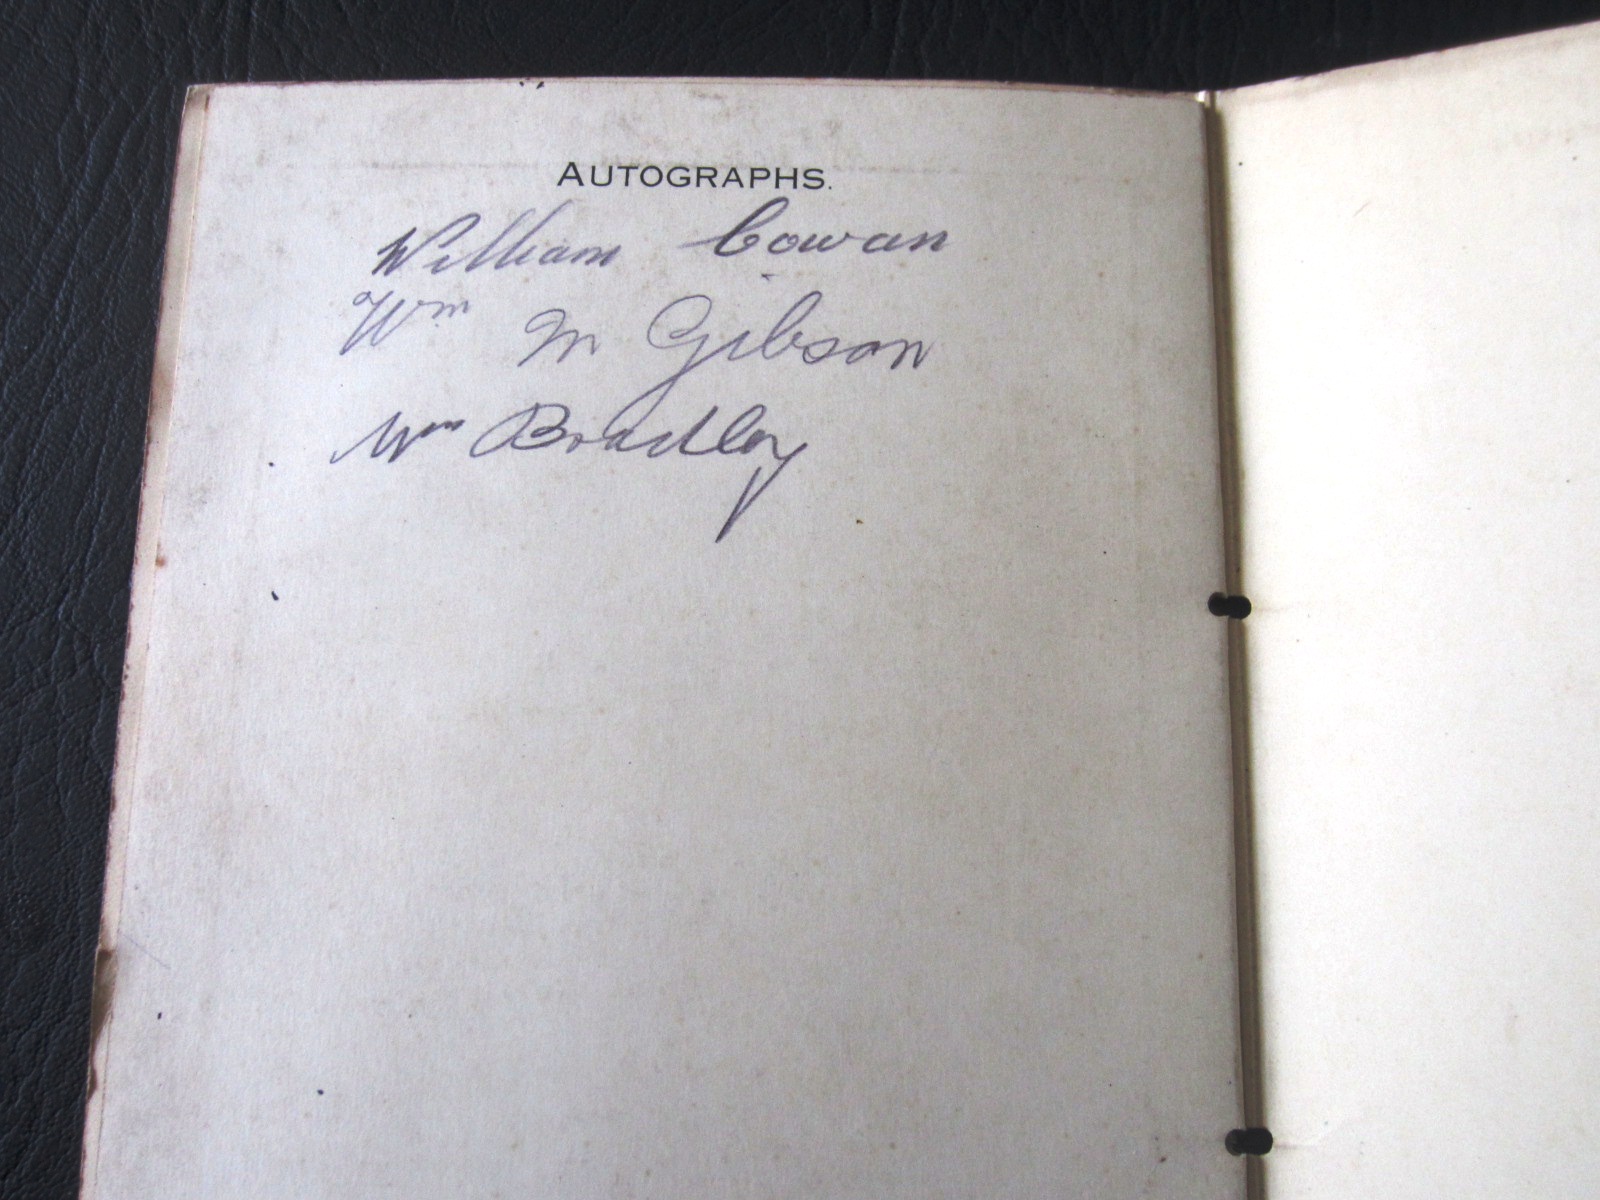 AUTOGRAPHS.
William Cowan
Wm M Gibson
Wm Bradley